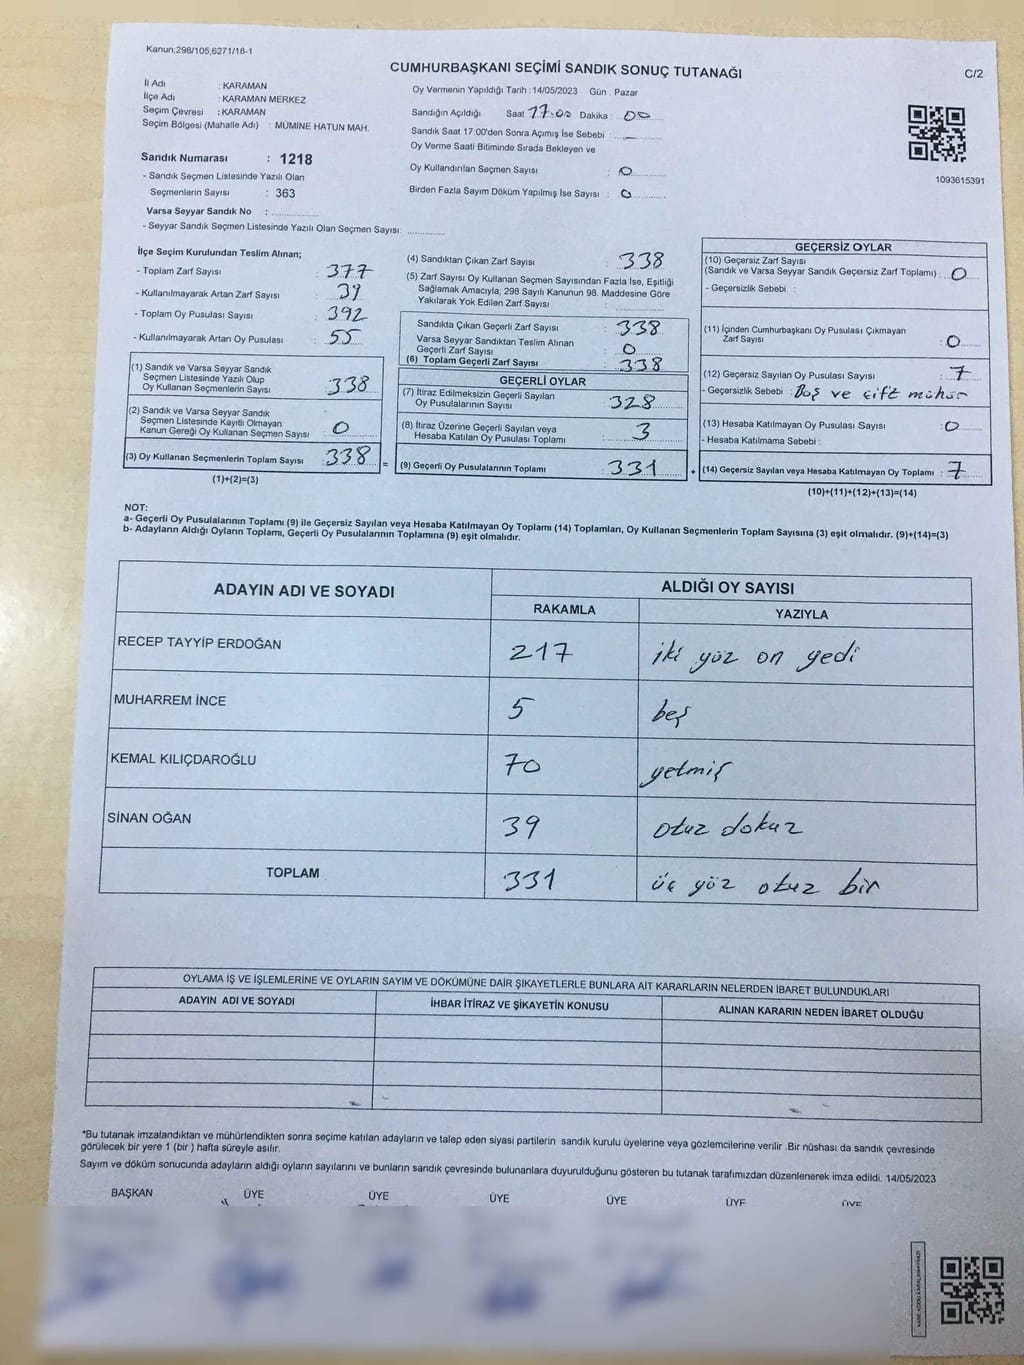 Kanun;298/105,6271/18-1
CUMHURBAŞKANI SEÇİMİ SANDIK SONUÇ TUTANAĞI
C/2
İl Adı : KARAMAN
İlçe Adı : KARAMAN MERKEZ
Seçim Çevresi : KARAMAN
Seçim Bölgesi (Mahalle Adı) : MÜMİNE HATUN MAH.
Sandık Numarası : 1218
- Sandık Seçmen Listesinde Yazılı Olan
Seçmenlerin Sayısı : 363
Varsa Seyyar Sandık No :
- Seyyar Sandık Seçmen Listesinde Yazılı Olan Seçmen Sayısı:
Oy Vermenin Yapıldığı Tarih : 14/05/2023 Gün : Pazar
Sandığın Açıldığı Saat 17:00 Dakika : 00
Sandık Saat 17:00'den Sonra Açımış İse Sebebi : —
Oy Verme Saati Bitiminde Sırada Bekleyen ve
Oy Kullandırılan Seçmen Sayısı : 0
Birden Fazla Sayım Döküm Yapılmış İse Sayısı : 0
1093615391
İlçe Seçim Kurulundan Teslim Alınan;
- Toplam Zarf Sayısı : 377
- Kullanılmayarak Artan Zarf Sayısı : 39
- Toplam Oy Pusulası Sayısı : 392
- Kullanılmayarak Artan Oy Pusulası : 55
(1) Sandık ve Varsa Seyyar Sandık
Seçmen Listesinde Yazılı Olup
Oy Kullanan Seçmenlerin Sayısı : 338
(2) Sandık ve Varsa Seyyar Sandık
Seçmen Listesinde Kayıtlı Olmayan
Kanun Gereği Oy Kullanan Seçmen Sayısı : 0
(3) Oy Kullanan Seçmenlerin Toplam Sayısı : 338
(1)+(2)=(3)
(4) Sandıktan Çıkan Zarf Sayısı : 338
(5) Zarf Sayısı Oy Kullanan Seçmen Sayısından Fazla İse, Eşitliği
Sağlamak Amacıyla; 298 Sayılı Kanunun 98. Maddesine Göre
Yakılarak Yok Edilen Zarf Sayısı :
Sandıkta Çıkan Geçerli Zarf Sayısı : 338
Varsa Seyyar Sandıktan Teslim Alınan
Geçerli Zarf Sayısı : 0
(6) Toplam Geçerli Zarf Sayısı : 338
GEÇERLİ OYLAR
(7) İtiraz Edilmeksizin Geçerli Sayılan
Oy Pusulalarının Sayısı : 328
(8) İtiraz Üzerine Geçerli Sayılan veya
Hesaba Katılan Oy Pusulası Toplamı : 3
= (9) Geçerli Oy Pusulalarının Toplamı : 331 +
GEÇERSİZ OYLAR
(10) Geçersiz Zarf Sayısı
(Sandık ve Varsa Seyyar Sandık Geçersiz Zarf Toplamı) : 0
- Geçersizlik Sebebi :
(11) İçinden Cumhurbaşkanı Oy Pusulası Çıkmayan
Zarf Sayısı : 0
(12) Geçersiz Sayılan Oy Pusulası Sayısı : 7
- Geçersizlik Sebebi : Boş ve çift mühür
(13) Hesaba Katılmayan Oy Pusulası Sayısı : 0
- Hesaba Katılmama Sebebi :
(14) Geçersiz Sayılan veya Hesaba Katılmayan Oy Toplamı : 7
(10)+(11)+(12)+(13)=(14)
NOT:
a- Geçerli Oy Pusulalarının Toplamı (9) ile Geçersiz Sayılan veya Hesaba Katılmayan Oy Toplamı (14) Toplamları, Oy Kullanan Seçmenlerin Toplam Sayısına (3) eşit olmalıdır. (9)+(14)=(3)
b- Adayların Aldığı Oyların Toplamı, Geçerli Oy Pusulalarının Toplamına (9) eşit olmalıdır.
ADAYIN ADI VE SOYADI
ALDIĞI OY SAYISI
RAKAMLA YAZIYLA
RECEP TAYYİP ERDOĞAN 217 iki yüz on yedi
MUHARREM İNCE 5 beş
KEMAL KILIÇDAROĞLU 70 yetmiş
SİNAN OĞAN 39 otuz dokuz
TOPLAM 331 üç yüz otuz bir
OYLAMA İŞ VE İŞLEMLERİNE VE OYLARIN SAYIM VE DÖKÜMÜNE DAİR ŞİKAYETLERLE BUNLARA AİT KARARLARIN NELERDEN İBARET BULUNDUKLARI
ADAYIN ADI VE SOYADI İHBAR İTİRAZ VE ŞİKAYETİN KONUSU ALINAN KARARIN NEDEN İBARET OLDUĞU
*Bu tutanak imzalandıktan ve mühürlendikten sonra seçime katılan adayların ve talep eden siyasi partilerin sandık kurulu üyelerine veya gözlemcilerine verilir .Bir nüshası da sandık çevresinde
görülecek bir yere 1 (bir ) hafta süreyle asılır.
Sayım ve döküm sonucunda adayların aldığı oyların sayılarını ve bunların sandık çevresinde bulunanlara duyurulduğunu gösteren bu tutanak tarafımızdan düzenlenerek imza edildi. 14/05/2023
BAŞKAN ÜYE ÜYE ÜYE ÜYE ÜYE ÜYE